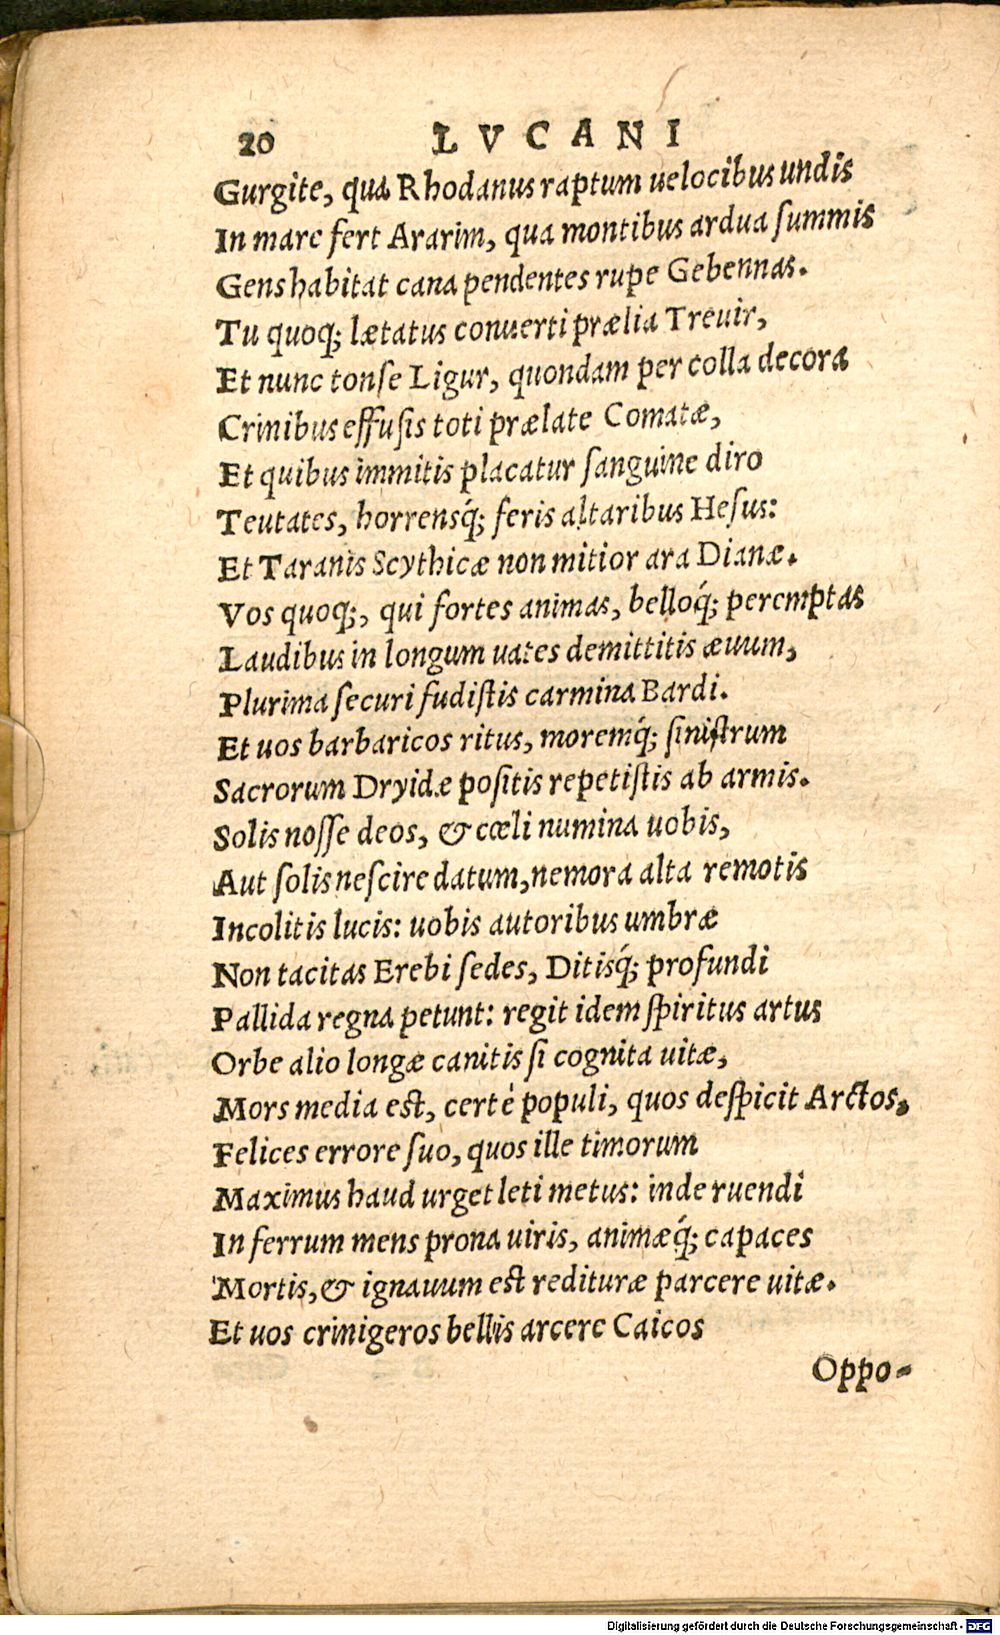 20 LVCANI
Gurgite, qua Rhodanus raptum uelocibus undis
In mare fert Ararim, qua montibus ardua ſummis
Gens habitat cana pendentes rupe Gebennas.
Tu quoq; lætatus conuerti prælia Treuir,
Et nunc tonſe Ligur, quondam per colla decora
Crinibus effuſis toti prælate Comatæ,
Et quibus immitis placatur ſanguine diro
Teutates, horrensq́; feris altaribus Heſus:
Et Taranis Scythicæ non mitior ara Dianæ.
Vos quoq;, qui fortes animas, belloq́; peremptas
Laudibus in longum uates demittitis æuum,
Plurima ſecuri fudiſtis carmina Bardi.
Et uos barbaricos ritus, moremq́; ſiniſtrum
Sacrorum Dryidæ poſitis repetiſtis ab armis.
Solis noſſe deos, & cœli numina uobis,
Aut ſolis neſcire datum, nemora alta remotis
Incolitis lucis: uobis autoribus umbræ
Non tacitas Erebi ſedes, Ditisq́; profundi
Pallida regna petunt: regit idem ſpiritus artus
Orbe alio longæ canitis ſi cognita uitæ,
Mors media eſt, certè populi, quos deſpicit Arctos,
Felices errore ſuo, quos ille timorum
Maximus haud urget leti metus: inde ruendi
In ferrum mens prona uiris, animæq́; capaces
Mortis, & ignauum eſt redituræ parcere uitæ.
Et uos crinigeros bellis arcere Caicos
Oppo-
Digitalisierung gefördert durch die Deutsche Forschungsgemeinschaft - DFG